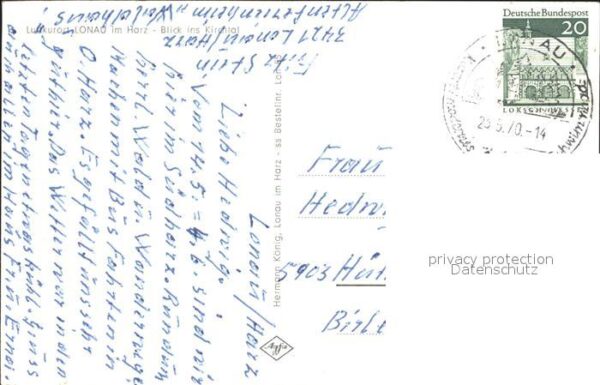 Luftkurort LONAU im Harz - Blick ins Kirchtal
Fritz Stein
3421 Lonau/Harz
Altenferienheim „Waldhaus“
Lonau/Harz
Liebe Hedwig!
Vom 14.5. - 4.6. sind wir
hier im Südharz. Rundum
herrl. Wald u. Wanderwege
Machen mit Bus Fahrten in
O Harz. Es gefällt uns sehr
gut hier. Das Wetter war in den
letzten Tagen etwas kühl. Gruss
an alle im Haus
Hermann König, Lonau im Harz - ss Bestellnr. Lona
agfa
Deutsche Bundespost
20
LORSCH/HESSEN
LONAU
25.5.70.-14
Frau
Hedw
5903 Hüt
Birle
privacy protection
Datenschutz